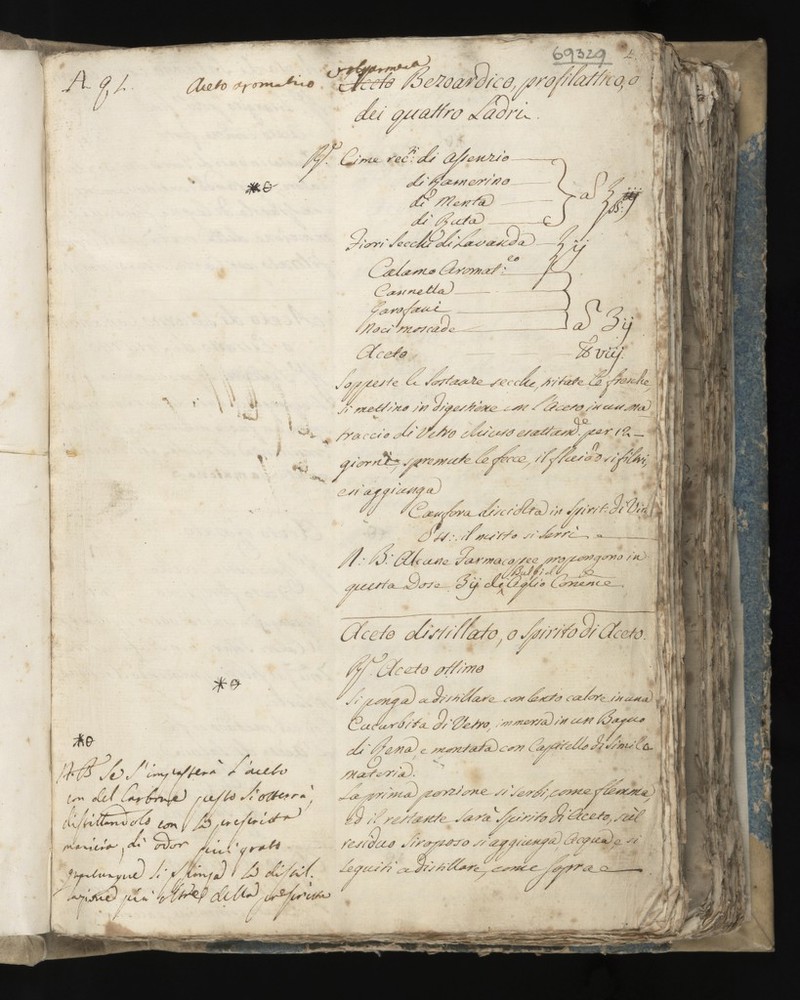 69329
A q. 1.
Aceto aromatico volgarmente
Aceto Bezoardico, profilattico, o
dei quattro Ladri.
℞. Cime rec.ti di Assenzio
di Ramerino
di Menta
di Ruta
Fiori secchi di Lavanda ℥ij
Calamo Aromat:co
Cannella
Garofani
Noci moscade aã ʒij
Aceto ℔ viij.
Soppeste le sostanze secche, tritate le fresche
si mettino in digestione con l'Aceto in un ma
traccio di Vetro chiuso esattam.te per 12
giorni, spremute le fecce, il fluido si filtri,
e si aggiunga
Canfora disciolta in Spirit: di Vin
il misto si serbi.
N: B: Alcune Farmacopee propongono in
questa Dose ʒij di Aglio
Aceto distillato, o Spirito di Aceto.
℞. Aceto ottimo
Si ponga a distillare con lento calore in una
Cucurbita di Vetro, immersa in un Bagno
di Rena, e montata con Capitello di simile
materia.
La prima porzione si serbi, come flemma,
ed il restante sarà Spirito di Aceto, sul
residuo siroposo si aggiunga Acqua e si
seguiti a distillare, come sopra
N.B. Se s'impasterà l'aceto
con del Carbone pesto si otterrà,
distillandolo con la prescritta
maniera, di odor più grato
quantunque si spinga la distil-
lazione più oltre della prescritta